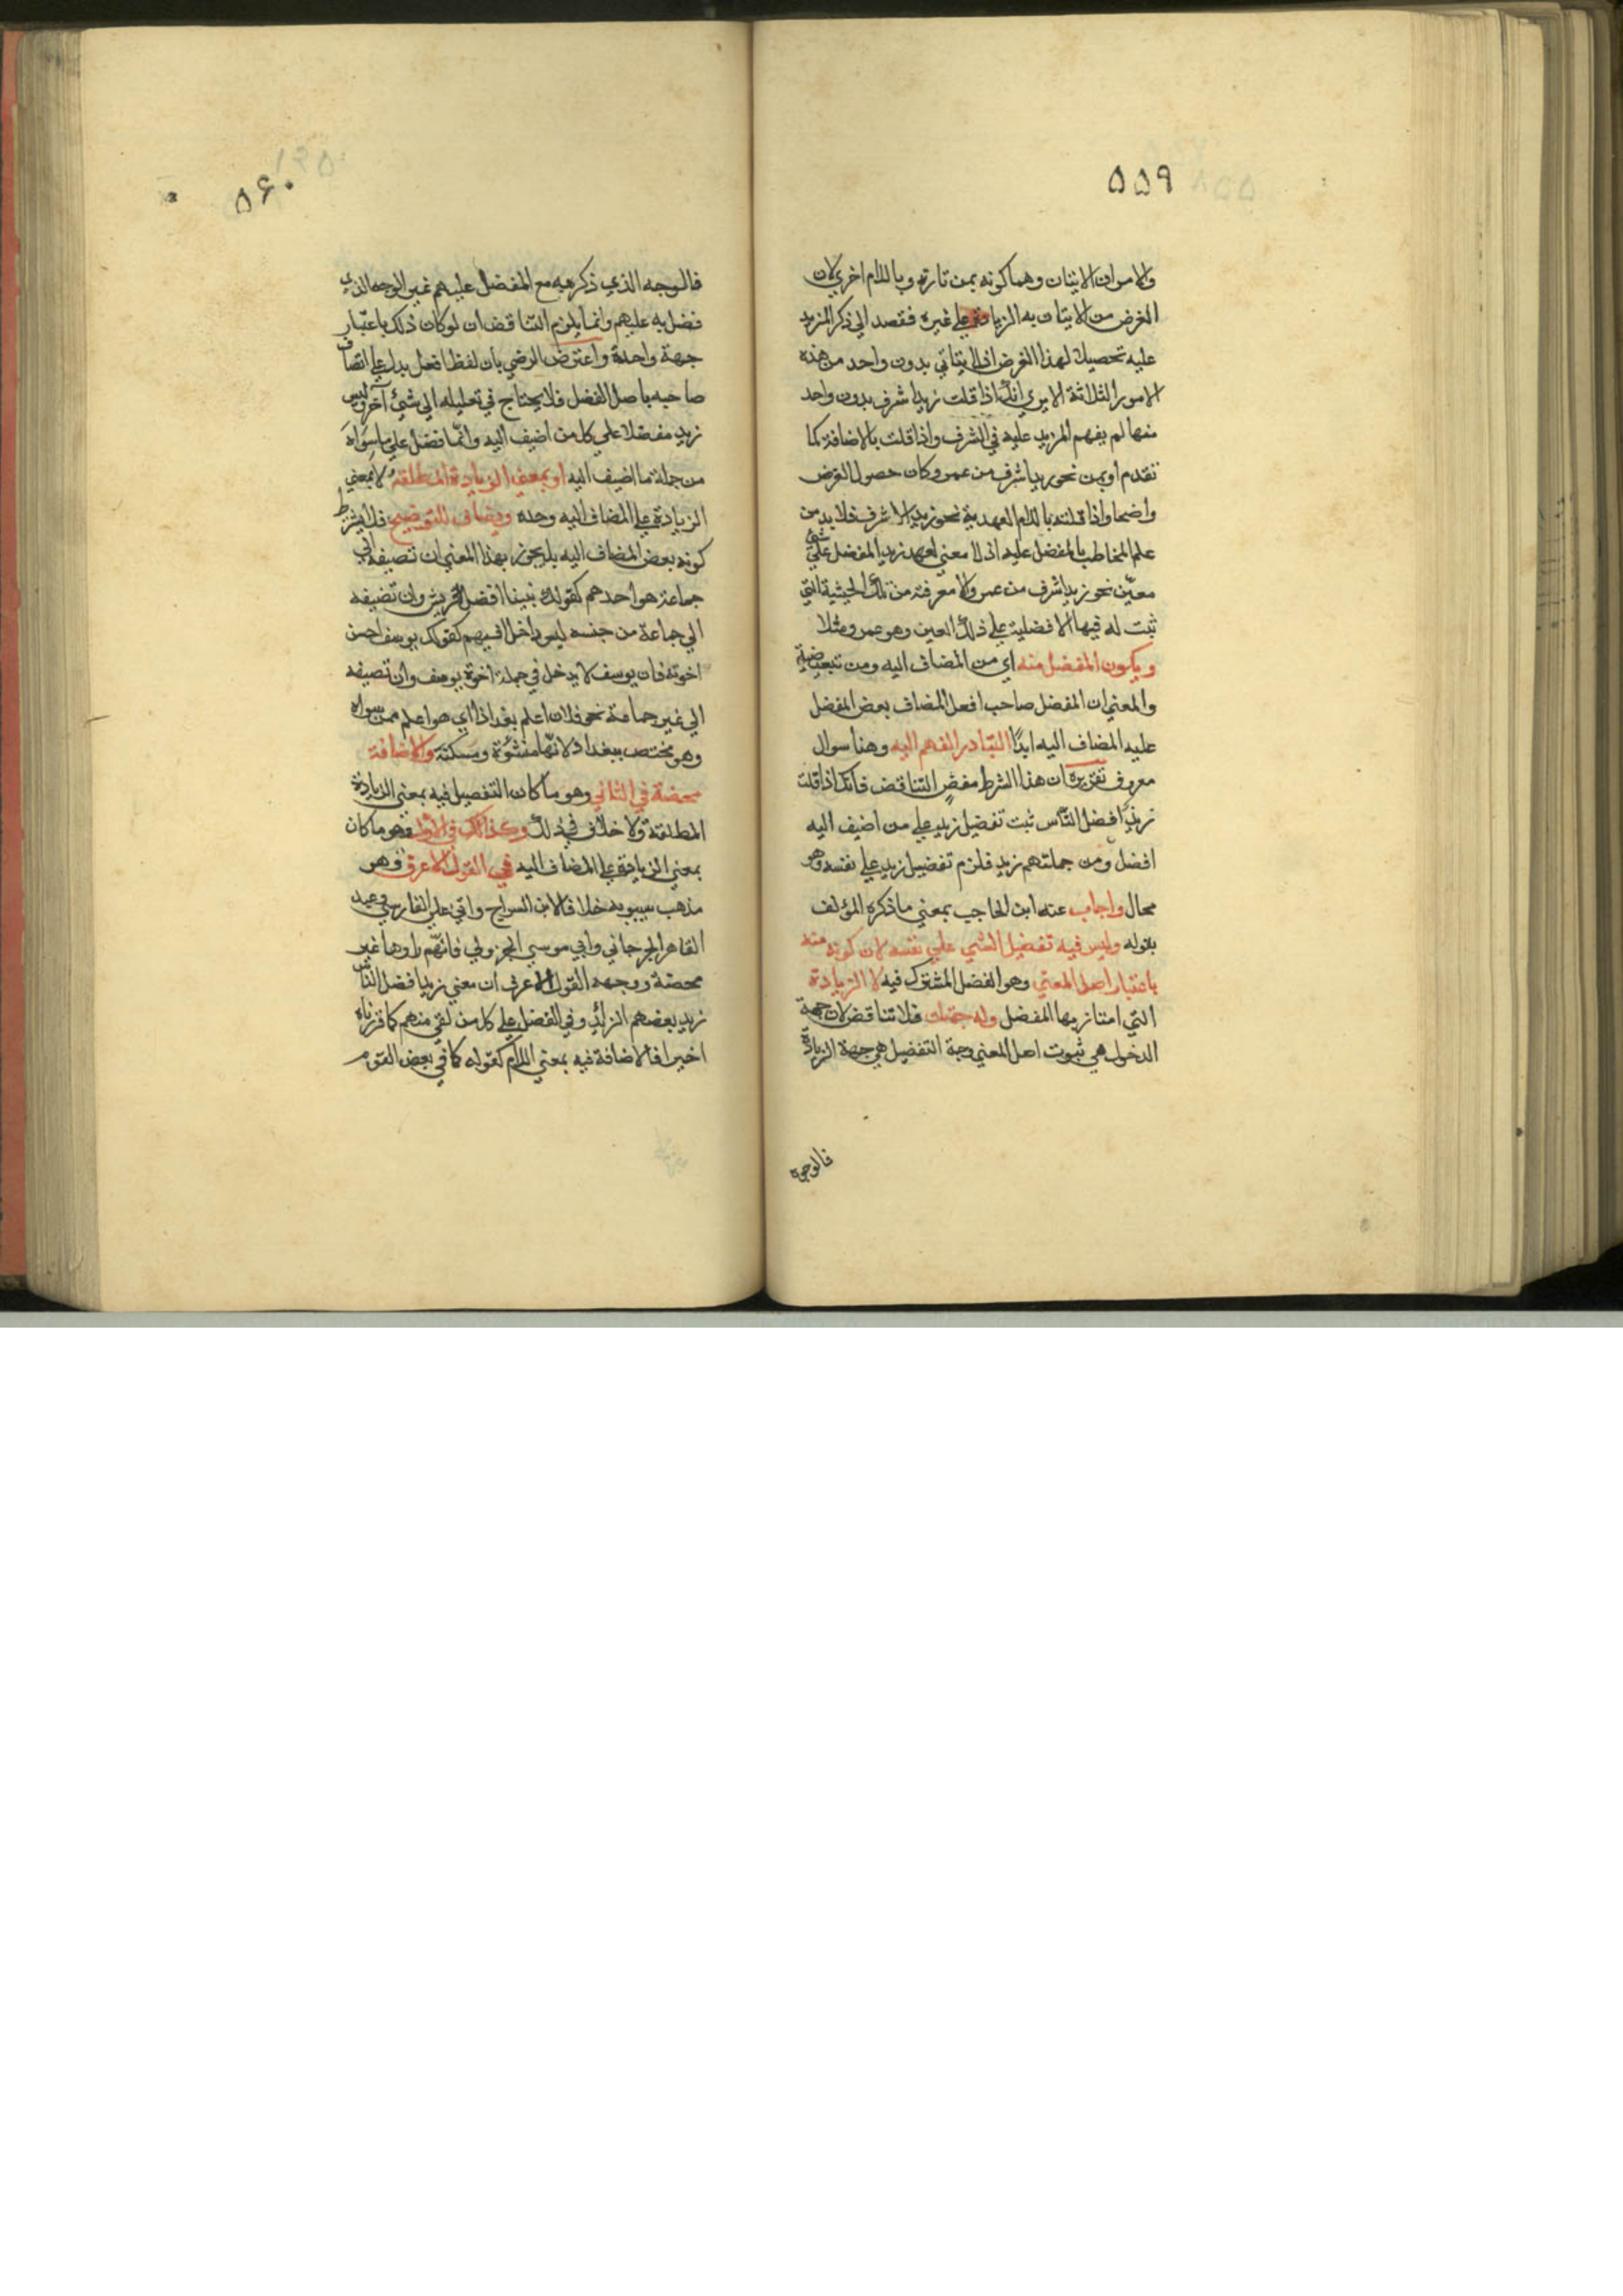 ٥٥٩
والامران الاتيان وهما كونه بمن تارة وباللام اخري لان
الغرض من الاتيان به الزيادة علي غيره فقصد الي ذكر المزيد
عليه تحصيلا لهذا الغرض اذ لا يتاتي بدون واحد من هذه
الامور الثلاثة الا يري انك اذا قلت زيد اشرف بدون واحد
منها لم يفهم المزيد عليه في الشرف واذا قلت بالاضافة كما
تقدم او بمن نحو زيد اشرف من عمرو كان حصول الغرض
واضحا واذا قلته باللام العهدية نحو زيد الاشرف فلا بد من
علم المخاطب بالمفضل عليه اذ لا معني لعهد زيد المفضل علي شئ
معيّن نحو زيد اشرف من عمرو الا معرفة من تلك الحيثية التي
ثبت له فيها الافضلية علي ذلك العين وهو عمرو مثلا
ويكون المفضل منه اي من المضاف اليه ومن تبعيضية
والمعني ان المفضل صاحب افعل المضاف بعض المفضل
عليه المضاف اليه ابدًا لتبادر الفهم اليه وهنا سوال
معروف تقريره ان هذا الشرط مفضٍ للتناقض فانك اذا قلت
زيد افضل النّاس ثبت تفضيل زيد علي من اضيف اليه
افضل ومن جملتهم زيد فلزم تفضيل زيد علي نفسه وهو
محال واجاب عنه ابن الحاجب بمعني ما ذكره المؤلف
بقوله وليس فيه تفضيل الشي علي نفسه لان كونه منه
باعتبار اصل المعني وهو الفضل المشترك فيه لا الزيادة
التي امتاز بها المفضل وله جهتان فلا تناقض لان جهة
الدخول هي ثبوت اصل المعني وجهة التفضيل هي جهة الزيادة
فالوجه
٥۶٠
فالوجه الذي ذكر به مع المفضل عليهم غير الوجه الذي
فضل به عليهم وانما يلزم التناقض ان لو كان ذلك باعتبار
جهة واحدة واعترض الرضي بان لفظ افعل يدل علي اتصاف
صاحبه باصل الفضل فلا يحتاج في تعليله الي شئ آخر وليس
زيد مفضلا علي كل من اضيف اليه وانّما فضل علي ما سواه
من جملة ما اضيف اليه او بمعني الزيادة المطلقة لا بمعني
الزيادة علي المضاف اليه وحده ويضاف للتوضيح فلا يشترط
كونه بعض المضاف اليه بل يجوز بهذا المعني ان تضيفه الي
جماعة هو احدهم كقولك نبينا افضل قريش وان تضيفه
الي جماعة من جنسه ليس داخلا فيهم كقولك يوسف احسن
اخوته فان يوسف لا يدخل في جملة اخوة يوسف وان تضيفه
الي غير جماعة نحو فلان اعلم بغداذ اي هو اعلم ممن سواه
وهو مختص ببغداد لانّها منشؤة ومسكنة والاضافة
محضة في الثاني وهو ما كان التفضيل فيه بمعني الزيادة
المطلقة ولا خلاف في ذلك وكذلك في الاول وهو ما كان
بمعني الزيادة علي المضاف اليه في القول الاعرف وهو
مذهب سيبويه خلافا لابن السراج وابي علي الفارسي وعبد
القاهر الجرجاني وابي موسي الجزولي فانّهم راوها غير
محضة ووجهه القول الاعرف ان معني زيد افضل الناس
زيد بعضهم الزائد في الفضل علي كل من بقي منهم كما قررناه
اخيرا فالاضافة فيه بمعني اللام كقوله كما في بعض القوم